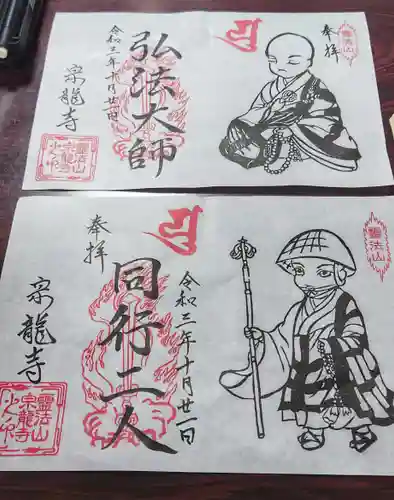 奉拝
霊法山
弘法大師
令和三年十月廿一日
宗龍寺
奉拝
霊法山
同行二人
令和三年十月廿一日
宗龍寺
霊法山
宗龍寺